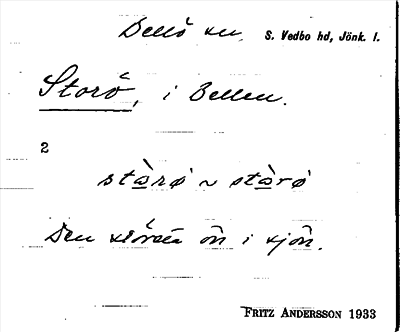 Bellö sn. S. Vedbo hd, Jönk. l.
Storö, i Bellen.
2
stàrø ~ stàrø
Den största ön i sjön.
FRITZ ANDERSSON 1933